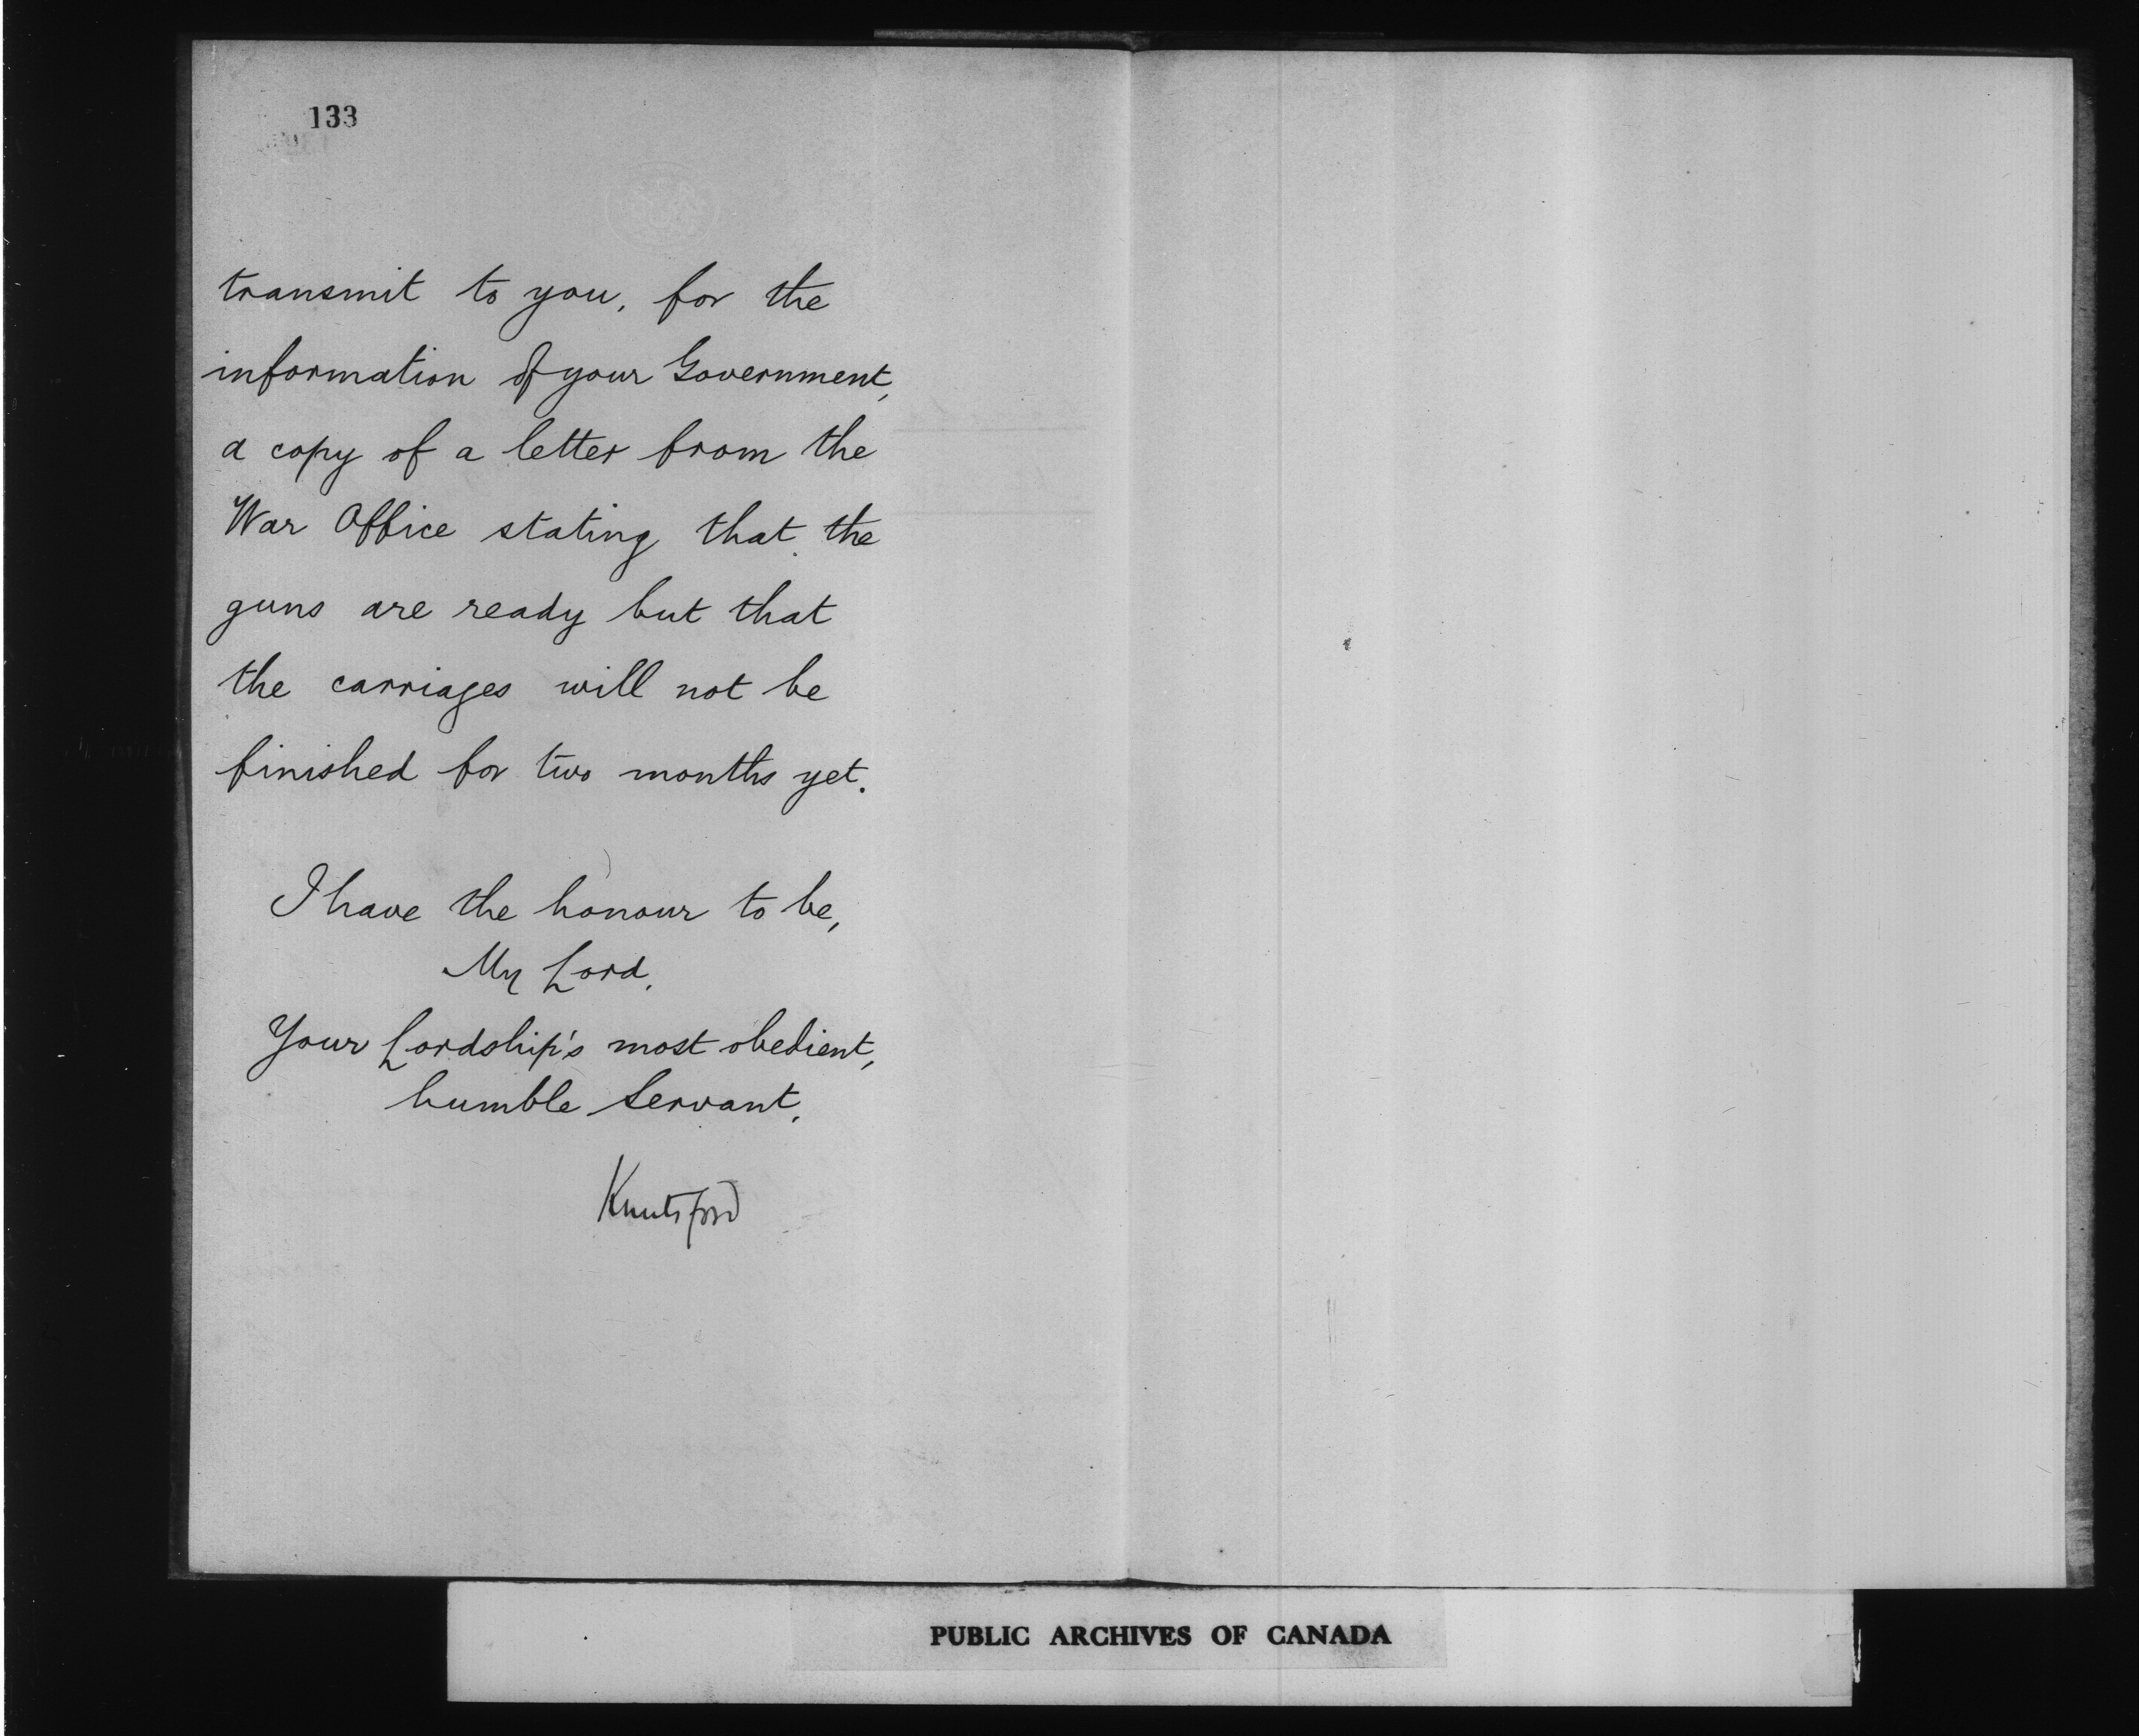 133
transmit to you, for the
information of your Government,
a copy of a letter from the
War Office stating that the
guns are ready but that
the carriages will not be
finished for two months yet.
I have the honour to be,
My Lord,
Your Lordship's most obedient,
humble Servant,
Knutsford
PUBLIC ARCHIVES OF CANADA